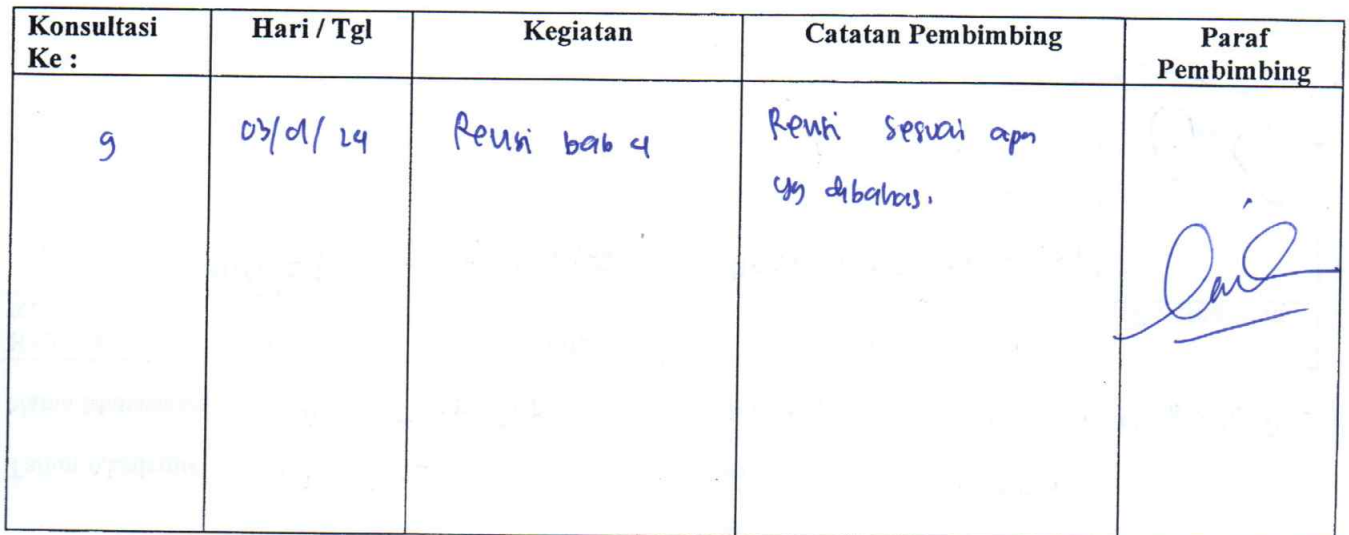 Konsultasi Ke :
Hari / Tgl
Kegiatan
Catatan Pembimbing
Paraf Pembimbing
9
03/01/24
Revisi bab 4
Revisi sesuai apa
yg dibahas.